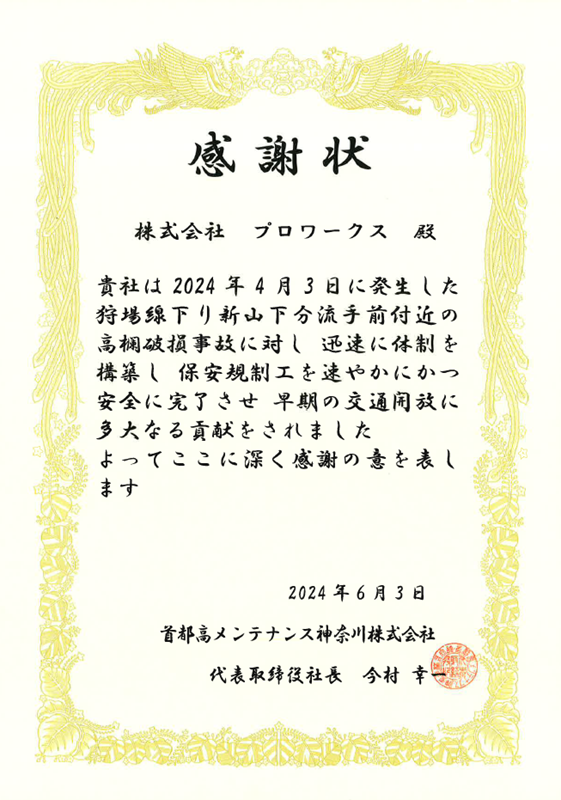 感謝状
株式会社 プロワークス 殿
貴社は2024年4月3日に発生した
狩場線下り新山下分流手前付近の
高欄破損事故に対し 迅速に体制を
構築し 保安規制工を速やかにかつ
安全に完了させ 早期の交通開放に
多大なる貢献をされました
よってここに深く感謝の意を表し
ます
2024年6月3日
首都高メンテナンス神奈川株式会社
代表取締役社長 今村 幸一